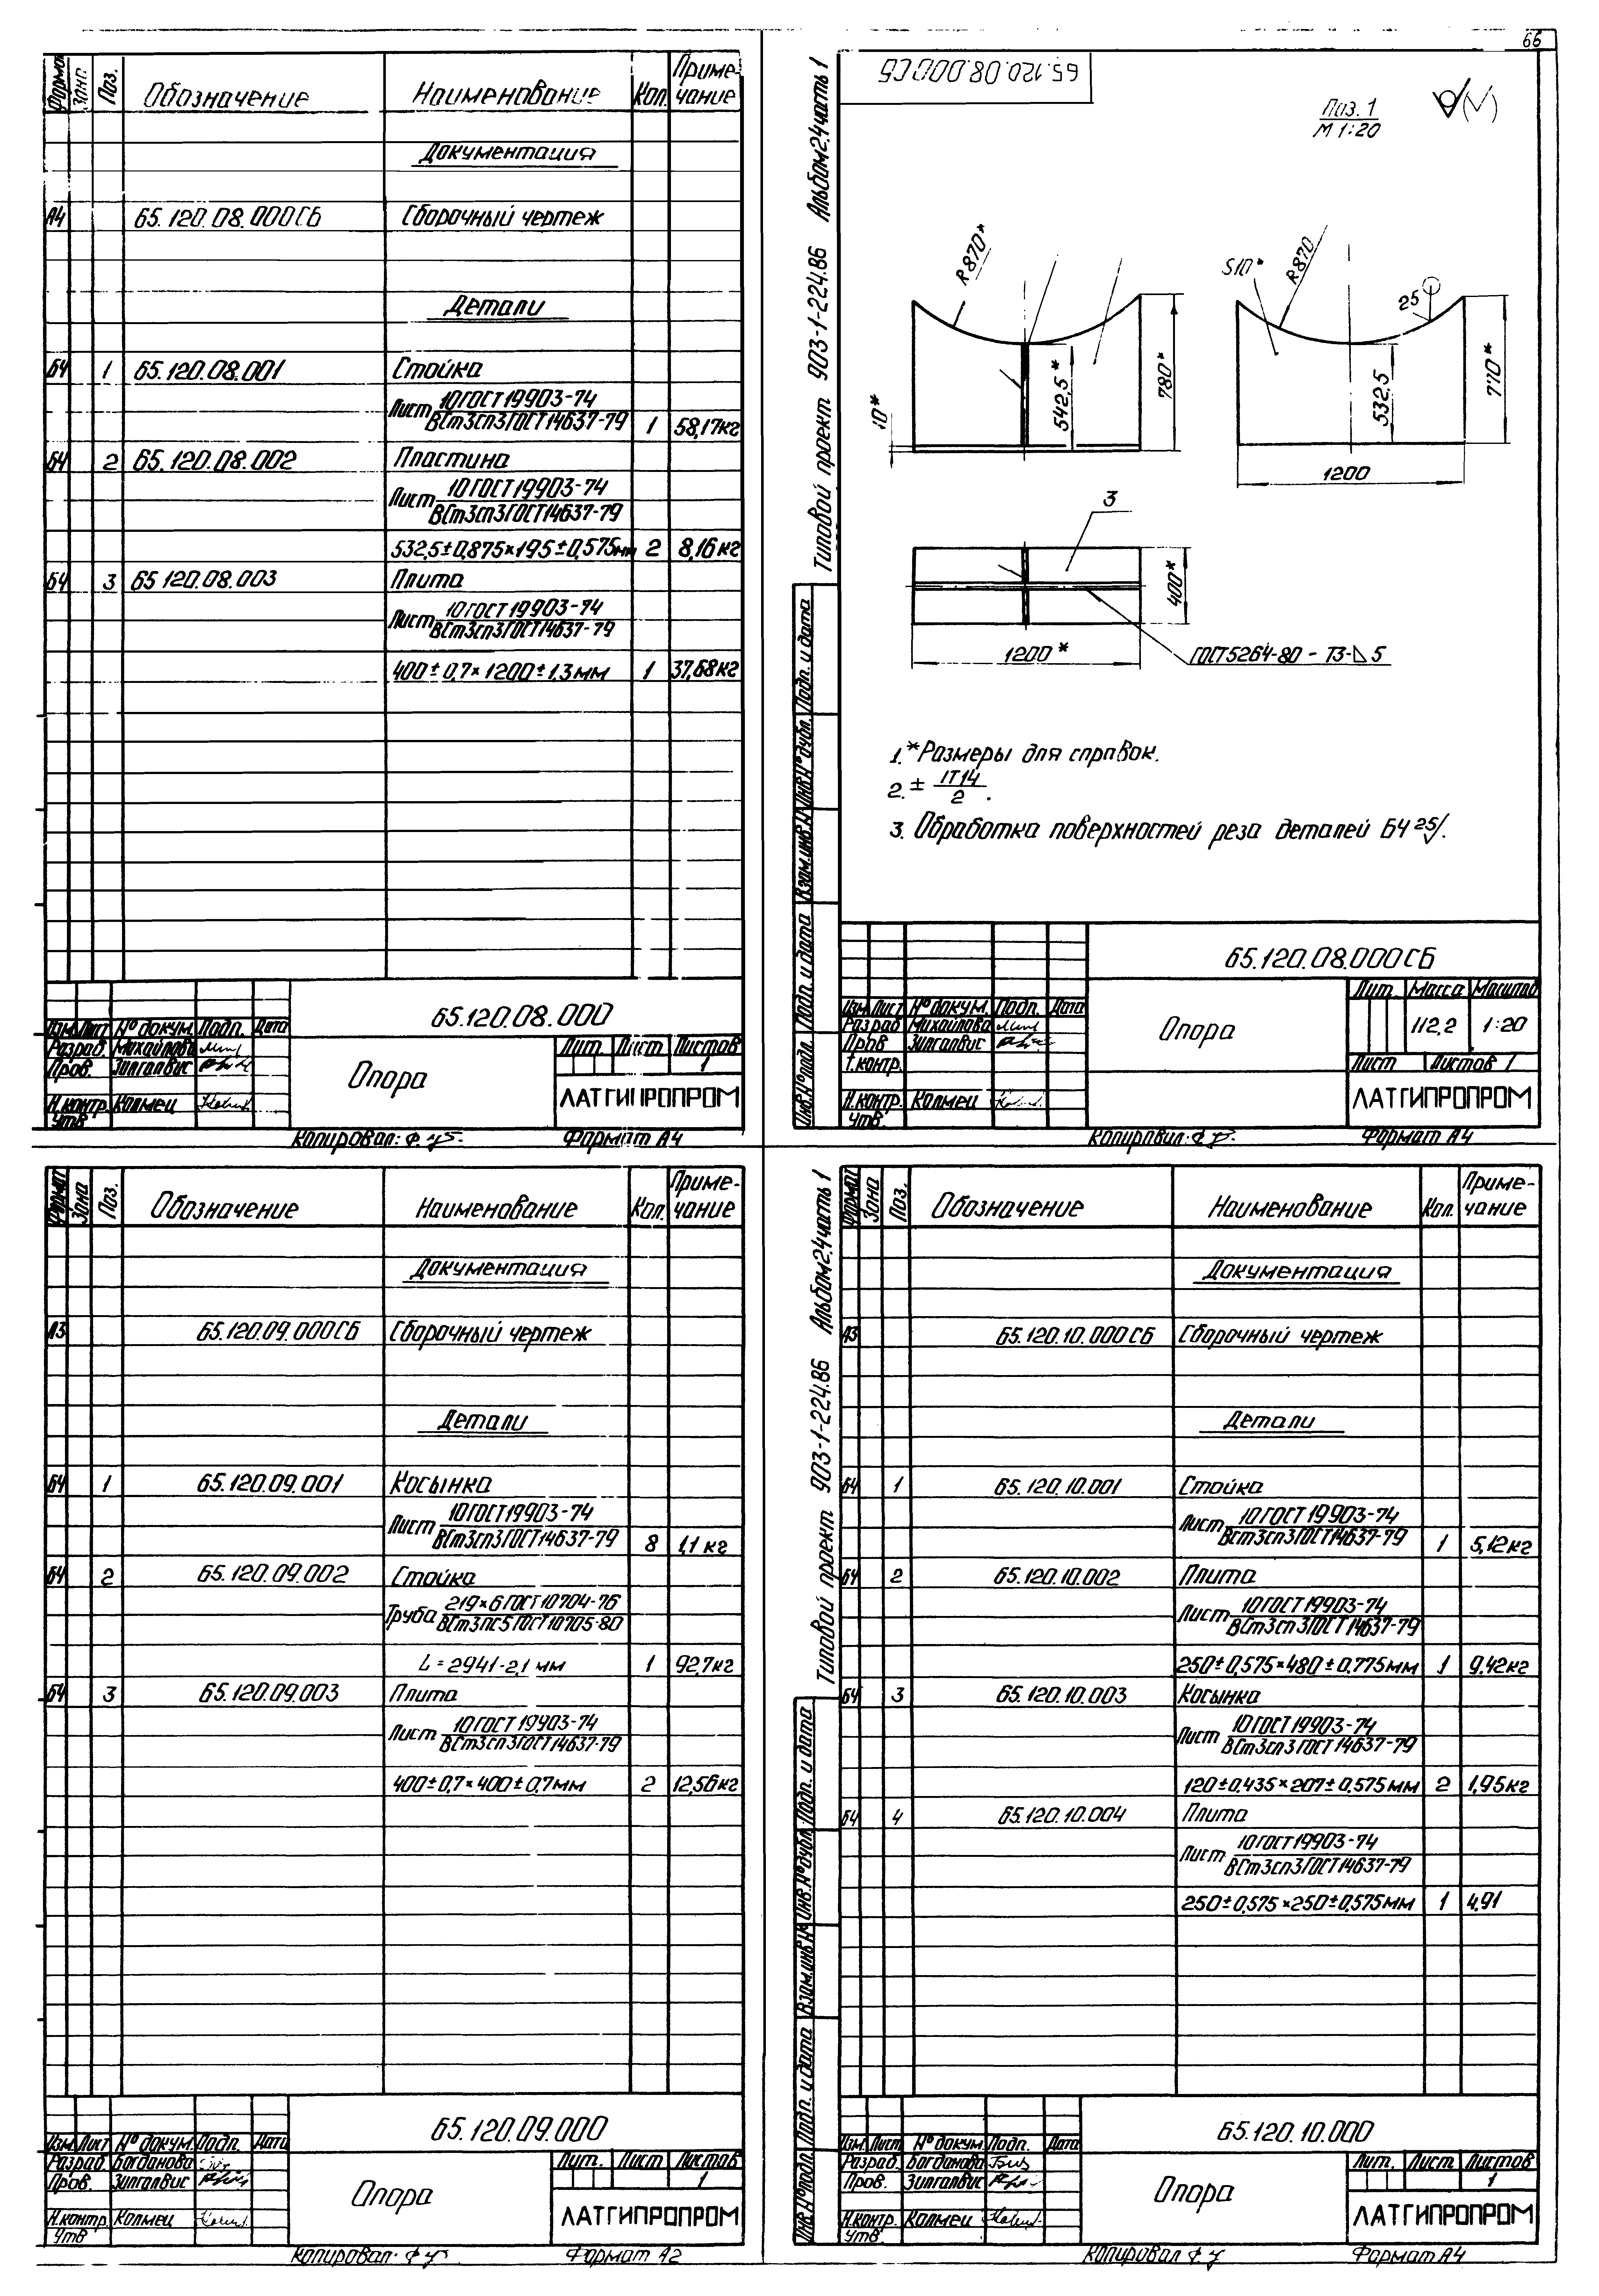 66
Формат Зона Поз. Обозначение Наименование Кол. Приме-
чание
Документация
А4 65.120.08.000СБ Сборочный чертеж
Детали
Б4 1 65.120.08.001 Стойка
Лист 10 ГОСТ 19903-74
ВСт3сп3 ГОСТ 14637-79 1 58,17кг
Б4 2 65.120.08.002 Пластина
Лист 10 ГОСТ 19903-74
ВСт3сп3 ГОСТ 14637-79
532,5±0,875×195±0,575мм 2 8,16кг
Б4 3 65.120.08.003 Плита
Лист 10 ГОСТ 19903-74
ВСт3сп3 ГОСТ 14637-79
400±0,7×1200±1,3мм 1 37,68кг
65.120.08.000
Изм. Лист № докум. Подп. Дата
Разраб. Михайлова
Пров. Зилгалвис
Н.контр. Колмец
Утв.
Опора
Лит. Лист Листов
1
ЛАТГИПРОПРОМ
Копировал: Формат А4
Типовой проект 903-1-224.86 Альбом 2.4 часть 1
65.120.08.000СБ
Поз. 1
М 1:20
R870*
542,5*
780*
10*
S10*
R870
25
532,5
770*
1200
3
400*
1200*
ГОСТ 5264-80 - Т3-⊿5
1.*Размеры для справок.
2. ± IT14
2 .
3. Обработка поверхностей реза деталей БЧ 25/.
Инв.№ подл. Подп. и дата Взам.инв.№ Инв.№ дубл. Подп. и дата
65.120.08.000СБ
Изм. Лист № докум. Подп. Дата
Разраб. Михайлова
Пров Зилгалвис
Т.контр.
Н.контр. Колмец
Утв.
Опора
Лит. Масса Масштаб
112,2 1:20
Лист Листов 1
ЛАТГИПРОПРОМ
Копировал: Формат А4
Формат Зона Поз. Обозначение Наименование Кол. Приме-
чание
Документация
А3 65.120.09.000СБ Сборочный чертеж
Детали
Б4 1 65.120.09.001 Косынка
Лист 10 ГОСТ 19903-74
ВСт3сп3 ГОСТ 14637-79 8 1,1 кг
Б4 2 65.120.09.002 Стойка
Труба 219×6 ГОСТ 10704-76
ВСт3пс5 ГОСТ 10705-80
L=2941-2,1 мм 1 92,7кг
Б4 3 65.120.09.003 Плита
Лист 10 ГОСТ 19903-74
ВСт3сп3 ГОСТ 14637-79
400±0,7×400±0,7мм 2 12,56кг
65.120.09.000
Изм. Лист № докум. Подп. Дата
Разраб. Богданова
Пров. Зилгалвис
Н.контр. Колмец
Утв
Опора
Лит. Лист Листов
1
ЛАТГИПРОПРОМ
Копировал: Формат А2
Типовой проект 903-1-224.86 Альбом 2.4 часть 1
Формат Зона Поз. Обозначение Наименование Кол. Приме-
чание
Документация
А3 65.120.10.000СБ Сборочный чертеж
Детали
Б4 1 65.120.10.001 Стойка
Лист 10 ГОСТ 19903-74
ВСт3сп3 ГОСТ 14637-79 1 5,12кг
Б4 2 65.120.10.002 Плита
Лист 10 ГОСТ 19903-74
ВСт3сп3 ГОСТ 14637-79
250±0,575×480±0,775мм 1 9,42кг
Б4 3 65.120.10.003 Косынка
Лист 10 ГОСТ 19903-74
ВСт3сп3 ГОСТ 14637-79
120±0,435×207±0,575мм 2 1,95кг
Б4 4 65.120.10.004 Плита
Лист 10 ГОСТ 19903-74
ВСт3сп3 ГОСТ 14637-79
250±0,575×250±0,575мм 1 4,91
Инв.№ подл. Подп. и дата Взам.инв.№ Инв.№ дубл. Подп. и дата
65.120.10.000
Изм. Лист № докум. Подп. Дата
Разраб. Богданова
Пров. Зилгалвис
Н.контр. Колмец
Утв.
Опора
Лит. Лист Листов
1
ЛАТГИПРОПРОМ
Копировал Формат А4